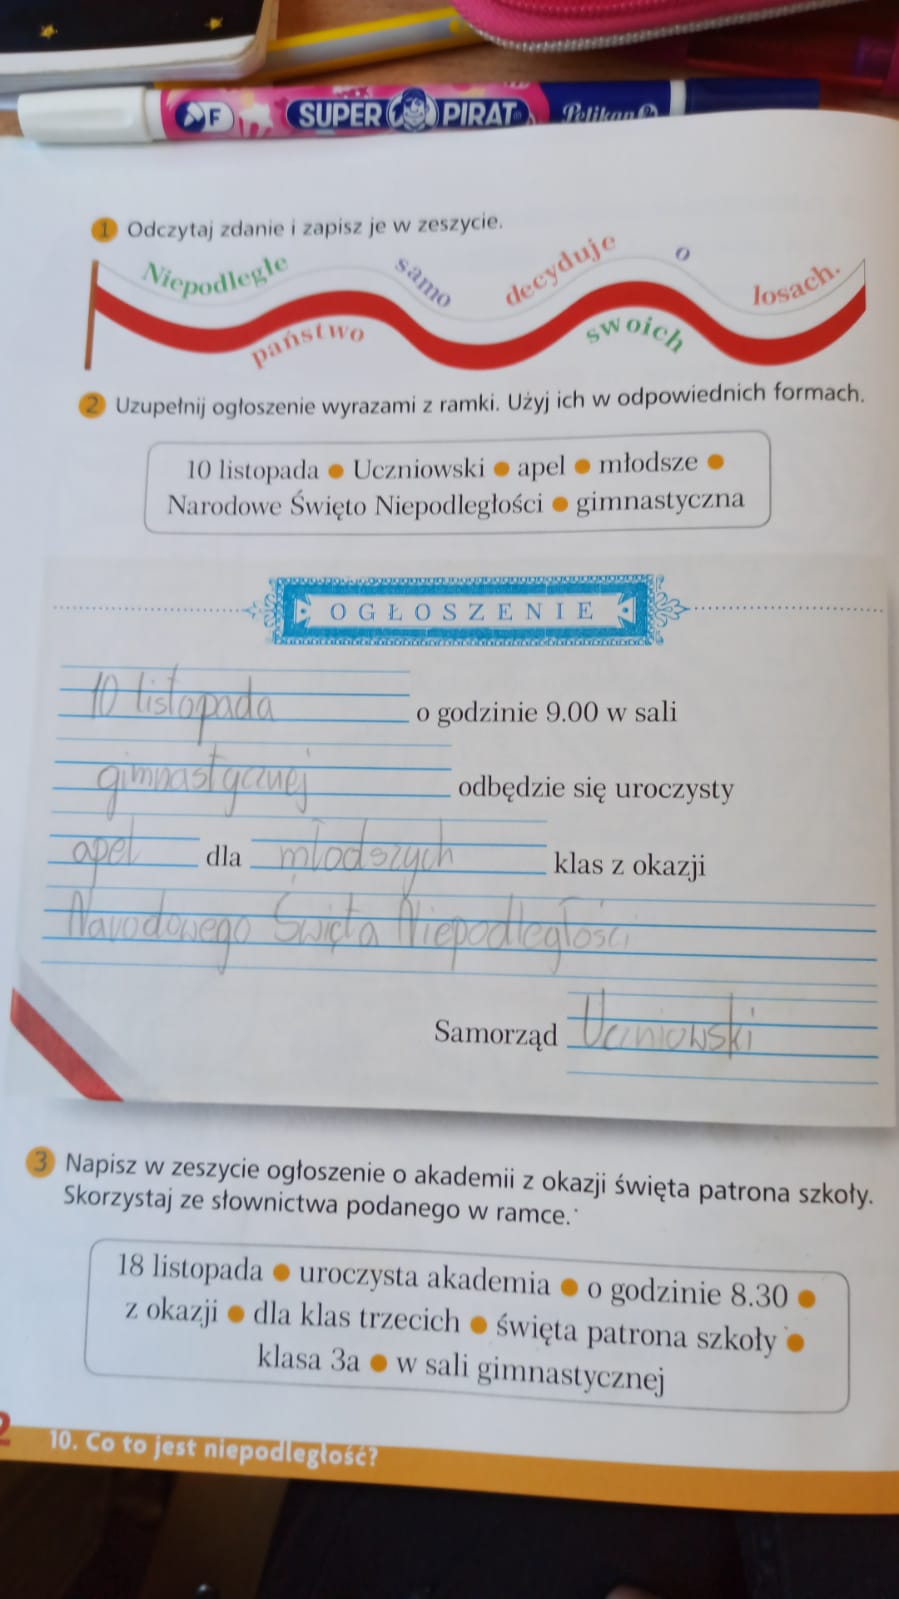 F SUPER PIRAT Pelikan
1 Odczytaj zdanie i zapisz je w zeszycie.
Niepodległe państwo samo decyduje o swoich losach.
2 Uzupełnij ogłoszenie wyrazami z ramki. Użyj ich w odpowiednich formach.
10 listopada • Uczniowski • apel • młodsze •
Narodowe Święto Niepodległości • gimnastyczna
OGŁOSZENIE
10 listopada o godzinie 9.00 w sali
gimnastycznej odbędzie się uroczysty
apel dla młodszych klas z okazji
Narodowego Święta Niepodległości
Samorząd Uczniowski
3 Napisz w zeszycie ogłoszenie o akademii z okazji święta patrona szkoły.
Skorzystaj ze słownictwa podanego w ramce.
18 listopada • uroczysta akademia • o godzinie 8.30 •
z okazji • dla klas trzecich • święta patrona szkoły •
klasa 3a • w sali gimnastycznej
2 10. Co to jest niepodległość?